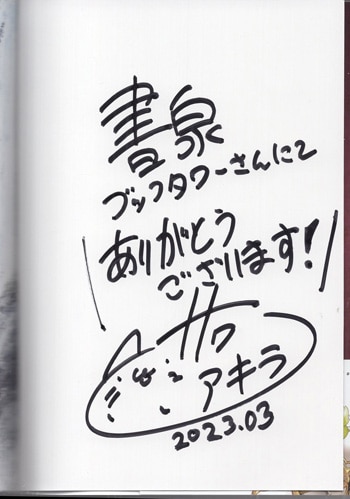 書泉
ブックタワーさんに
ありがとう
ございます!
アキラ
2023.03